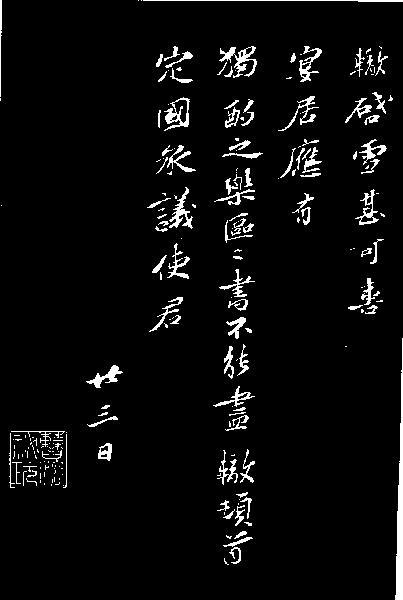 轍啓雪甚可喜
宴居應有
獨酌之樂區〻書不能盡 轍頓首
定國承議使君
廿三日